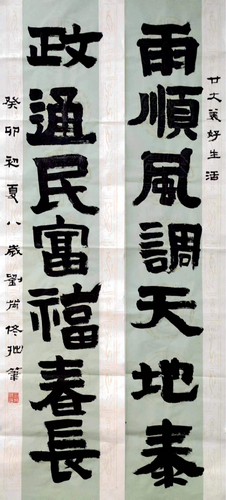 廿大美好生活
雨順風調天地泰
政通民富福春長
癸卯初夏八歲劉
筆